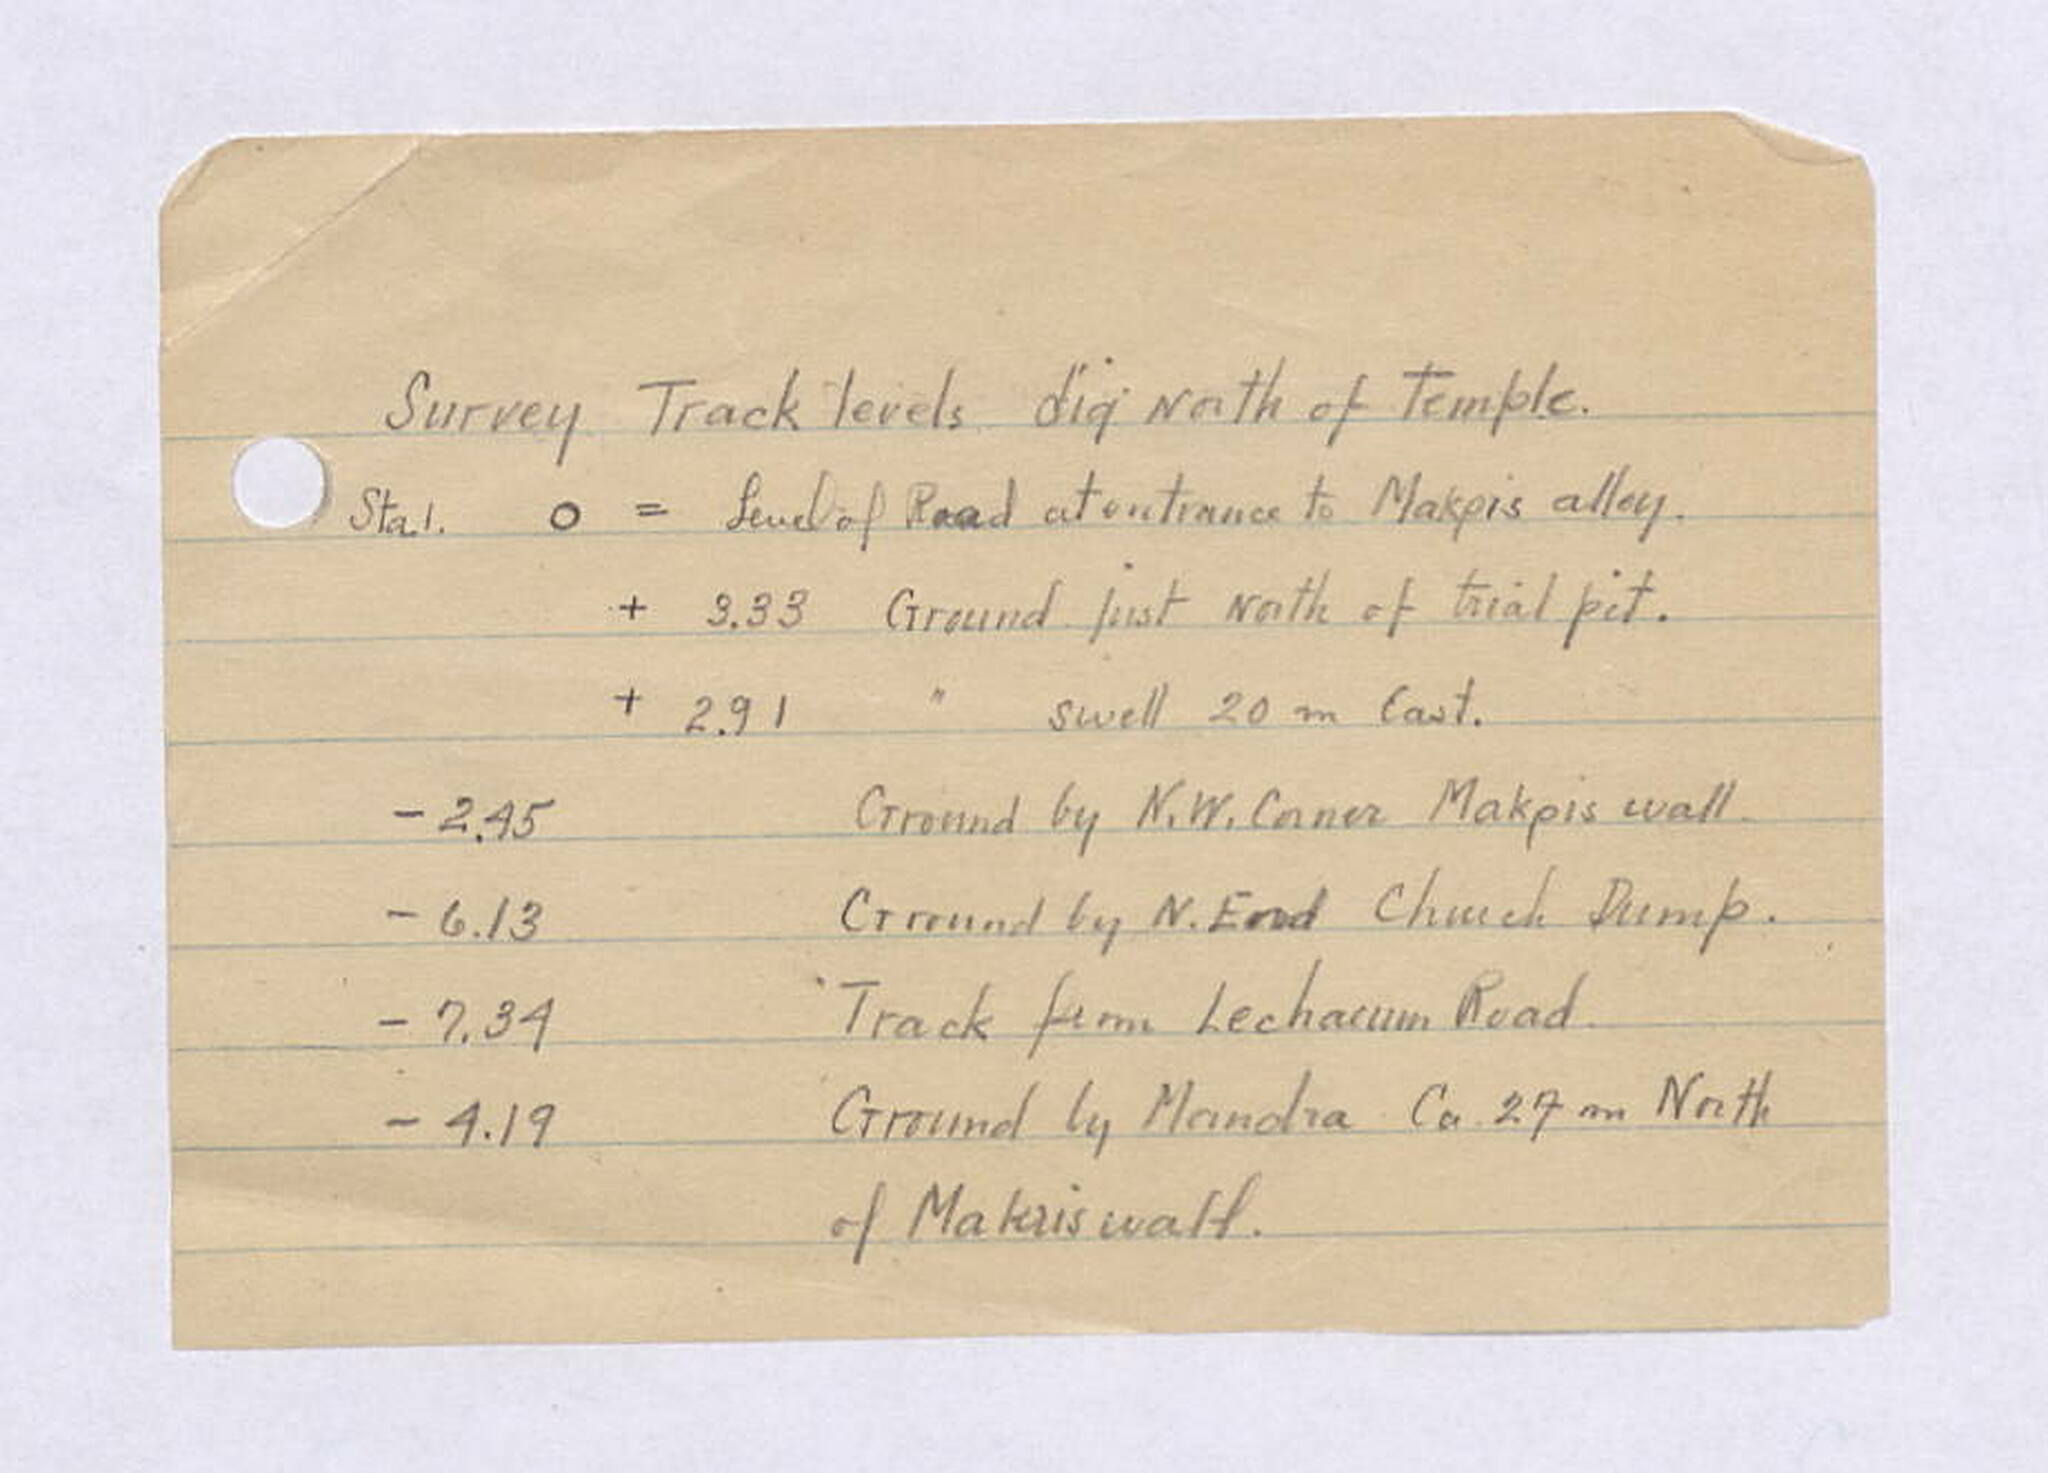 Survey Track levels dig North of Temple.
Sta 1. 0 = Level of Road at entrance to Makρis alley.
+ 3.33 Ground just North of trial pit.
+ 2.91 " swell 20 m East.
- 2.45 Ground by N.W. Corner Makρis wall.
- 6.13 Ground by N. End Church Dump.
- 7.34 Track from Lechaeum Road.
- 4.19 Ground by Mandra Ca. 27 m North
of Makris wall.